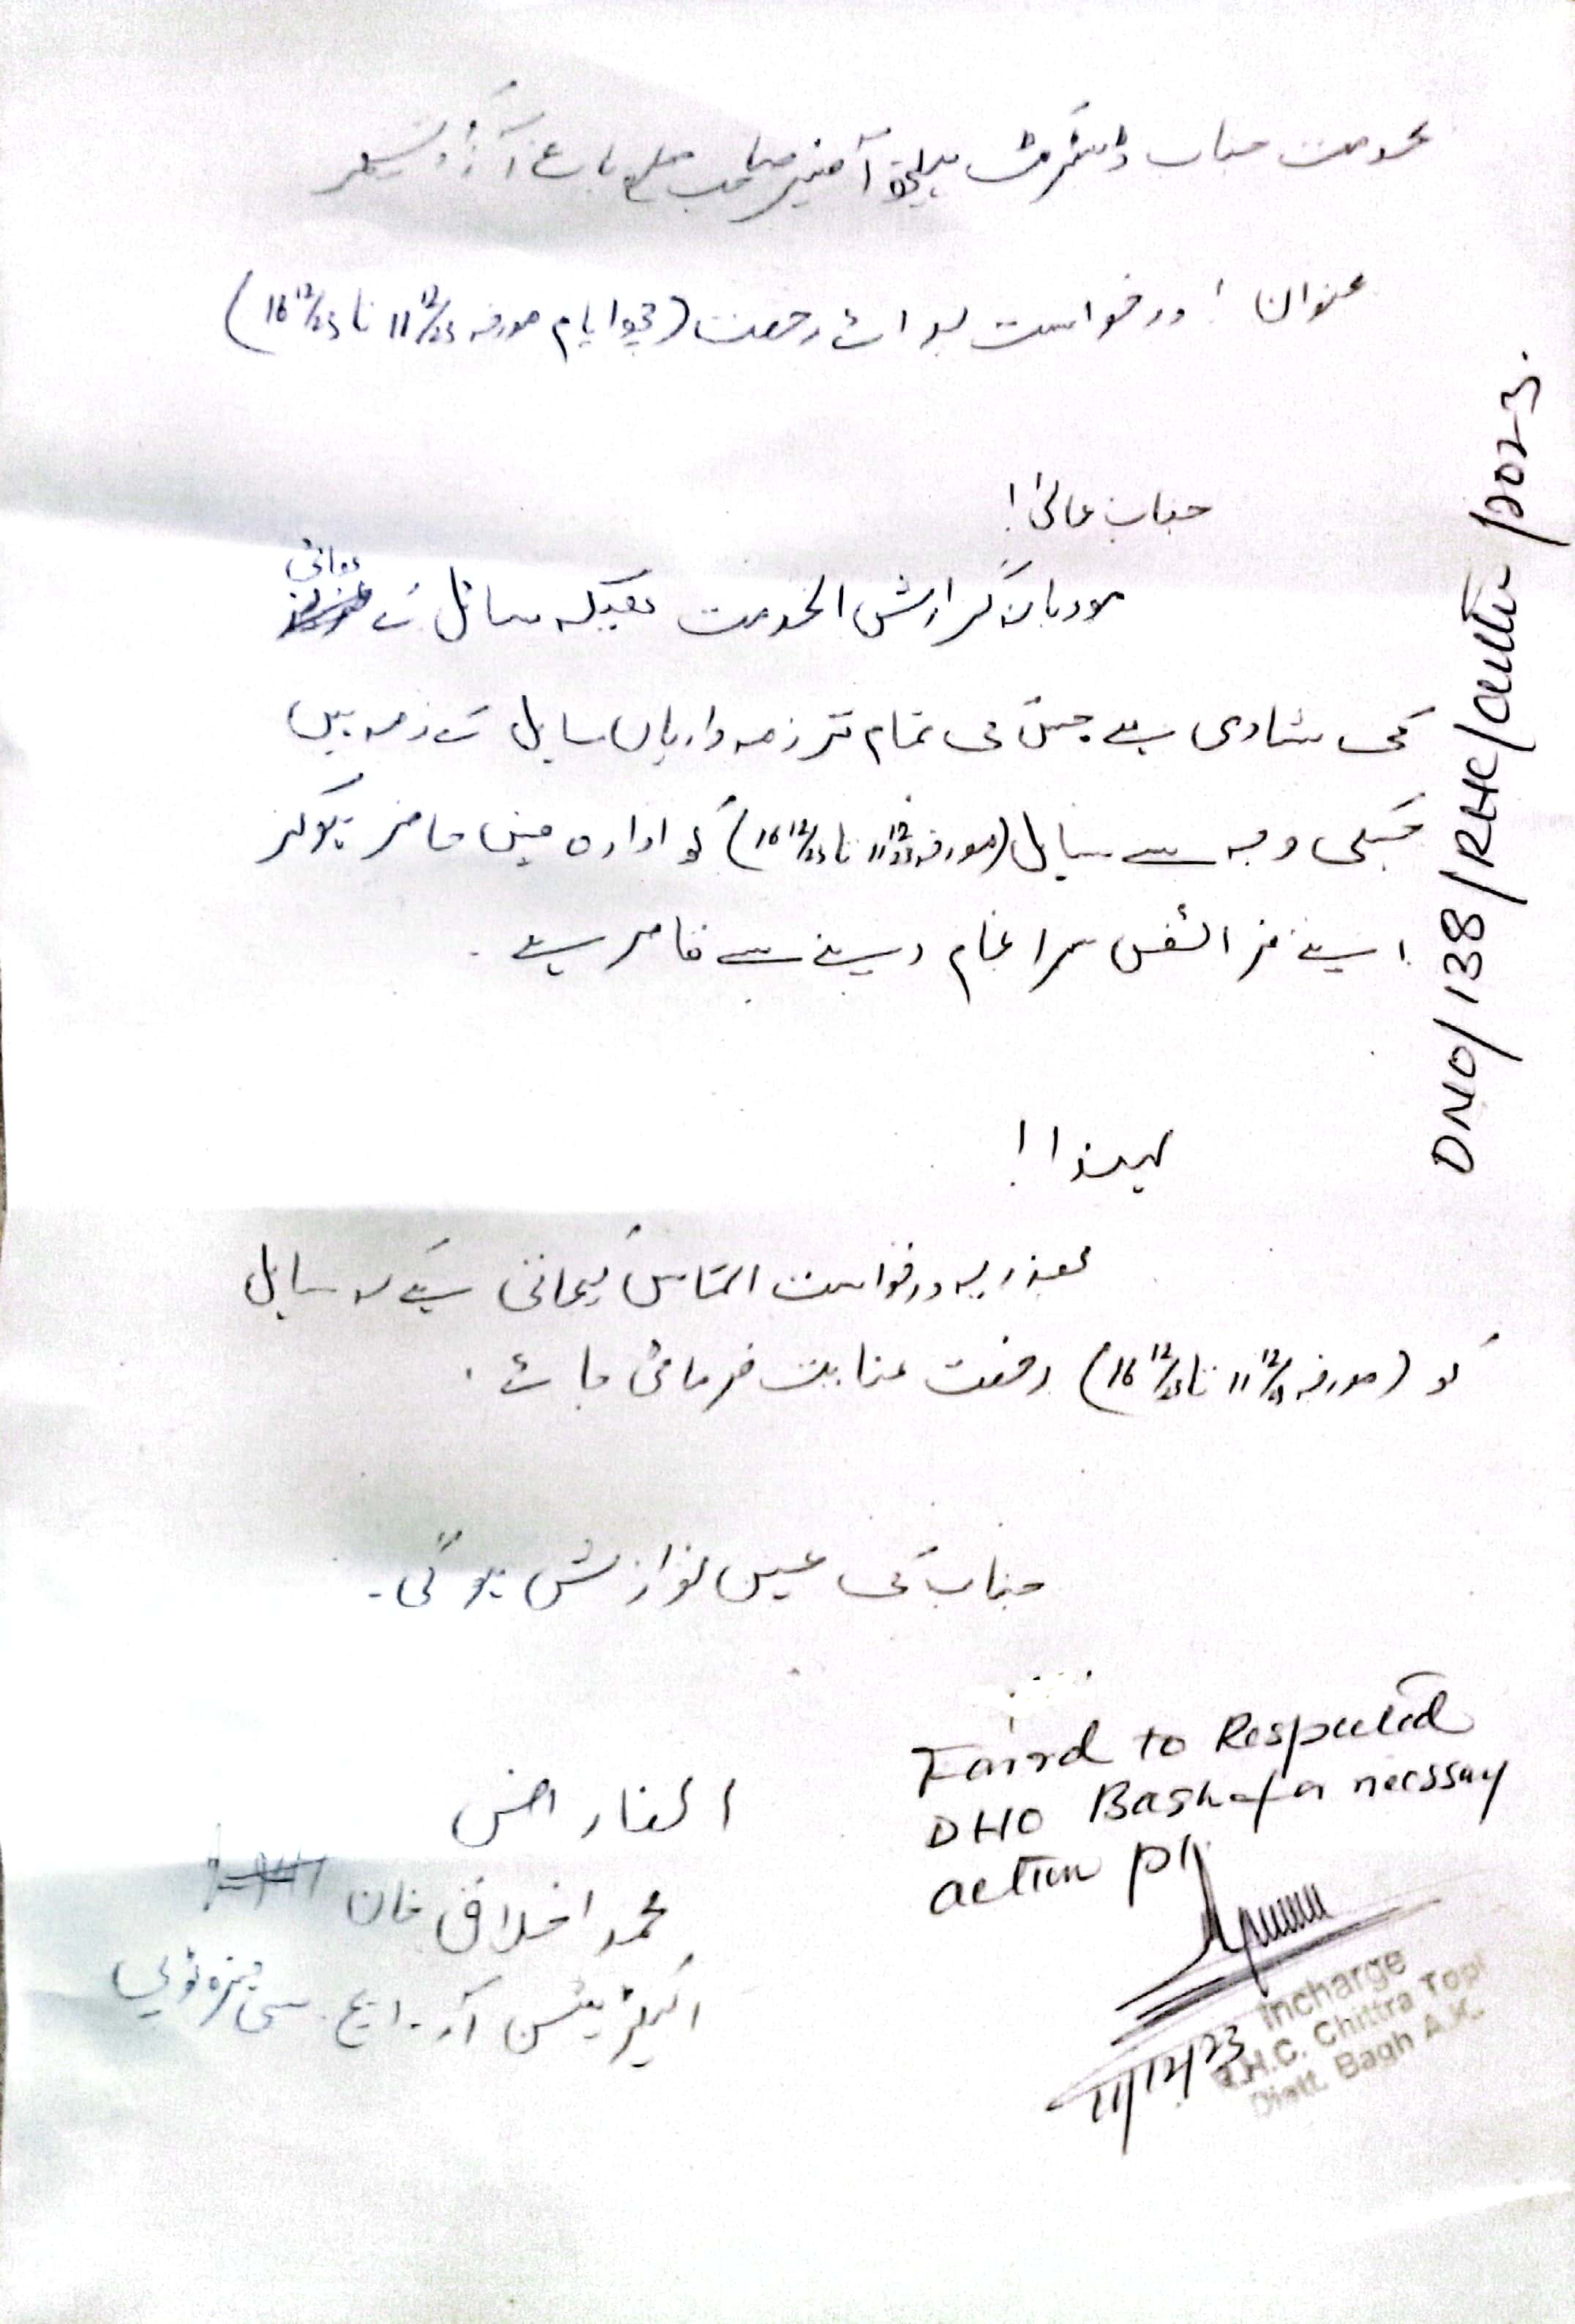 بخدمت جناب ڈسٹرکٹ ہیلتھ آفیسر صاحب ضلع باغ آزاد کشمیر
عنوان ! درخواست برائے رخصت (چھ ایام مورخہ 11 12/23 تا 16 12/23)
جناب عالی !
مودبانہ گزارش الخدمت ہیکہ سائل کے بھائی
کی شادی ہے جس کی تمام تر ذمہ داریاں سایل کے ذمہ ہیں
جسکی وجہ سے سایل (مورخہ 11 12/23 تا 16 12/23) کو ادارہ میں حاضر ہوکر
اپنے فرائض سرانجام دینے سے قاصر ہے ۔
لہذا !
بذریعہ درخواست التماس کیجاتی ہے کہ سایل
کو (مورخہ 11 12/23 تا 16 12/23) رخصت عنایت فرمائی جائے ۔
جناب کی عین نوازش ہو گی ۔
العارض
محمد اخلاق خان
آر ۔ ایچ ۔ سی
DNO/138/RHC/ /2023.
Forwd to Respected
DHO Bagh for necssary
action pl.
11/12/23
Incharge
R.H.C. Chittra Topi
Distt. Bagh A.K.